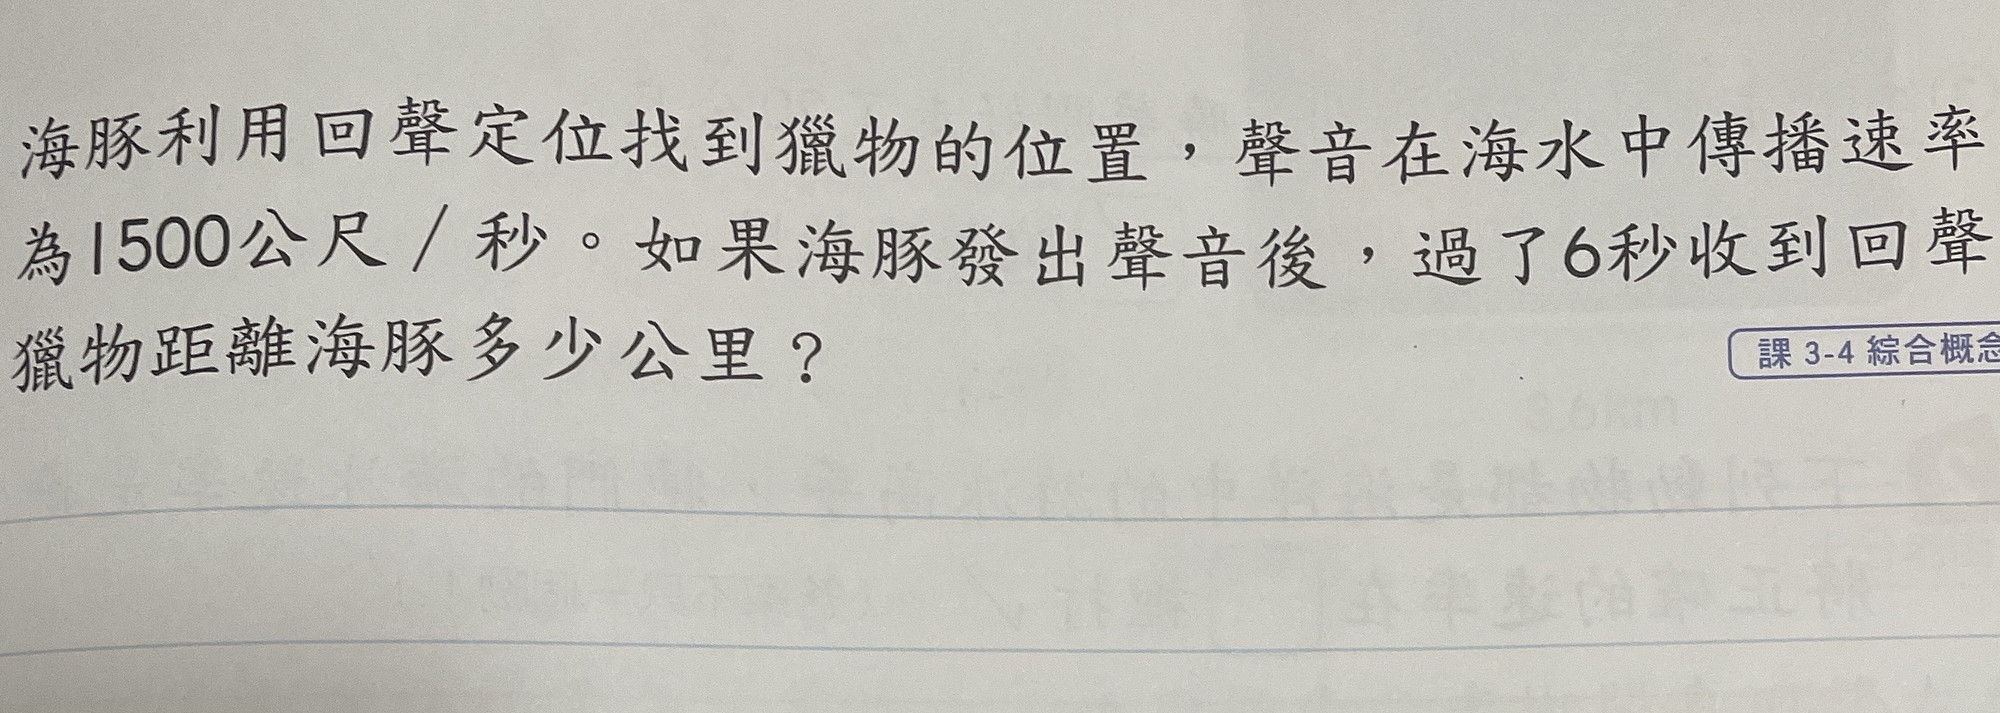 海豚利用回聲定位找到獵物的位置，聲音在海水中傳播速率
為1500公尺／秒。如果海豚發出聲音後，過了6秒收到回聲
獵物距離海豚多少公里？
課 3-4 綜合概念